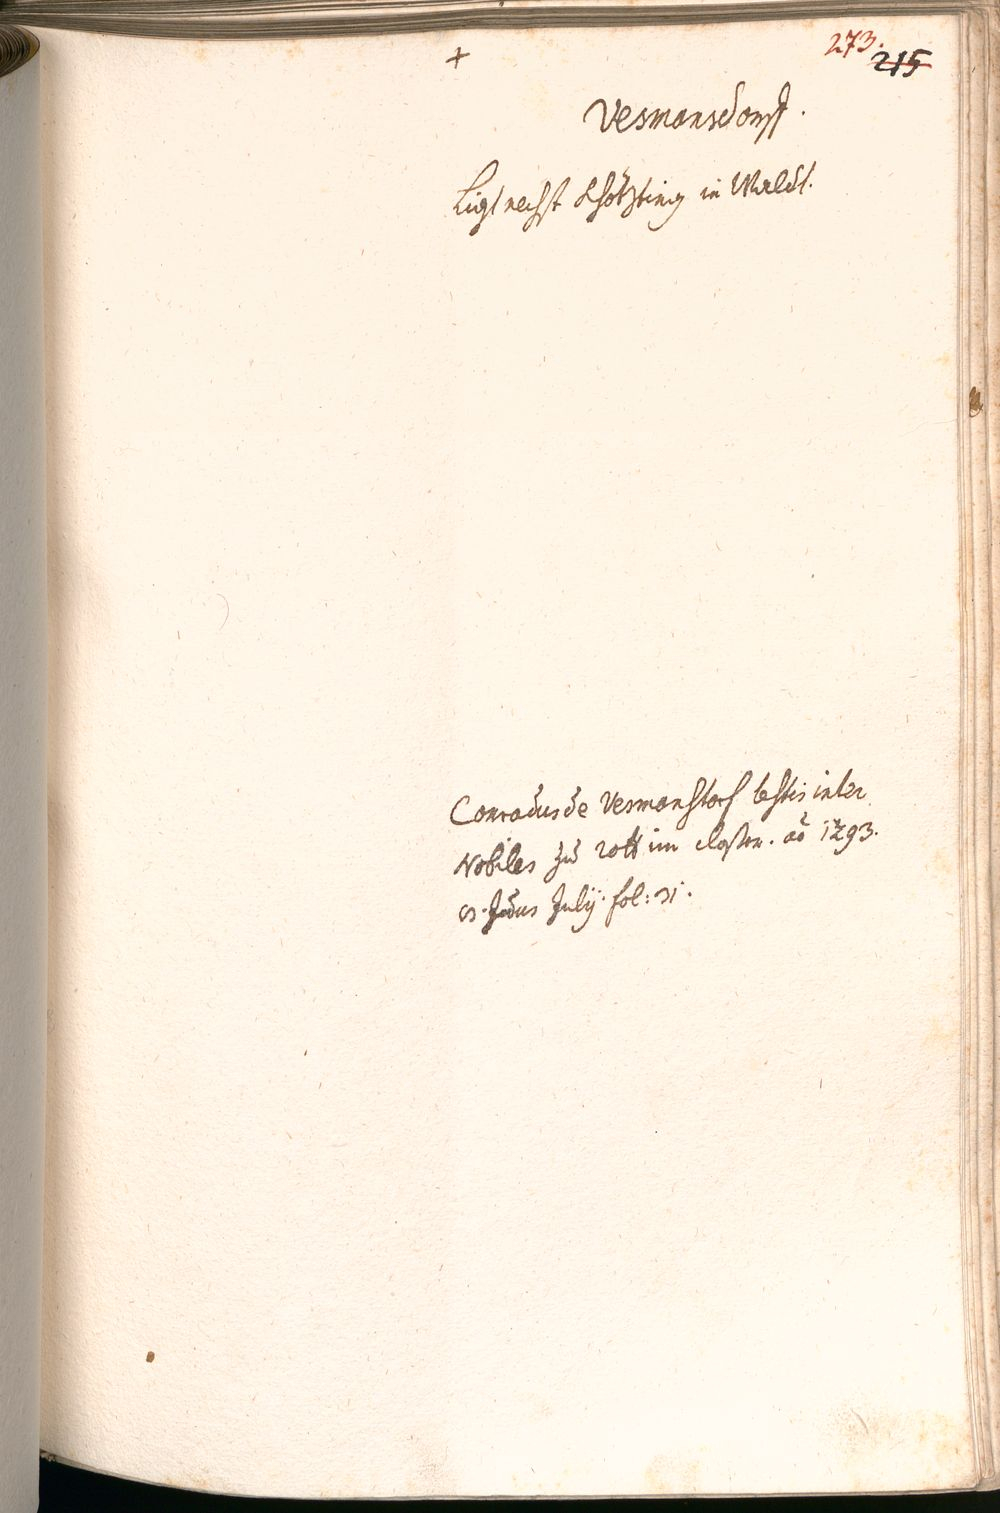 +
273.
215
Vesmansdorff.
Ligt nechst Khötzting in Waldt.
Conradus de Vesmanstorf testis inter
Nobiles zu rott im closter. ao 1293.
Idus July. fol: 31.